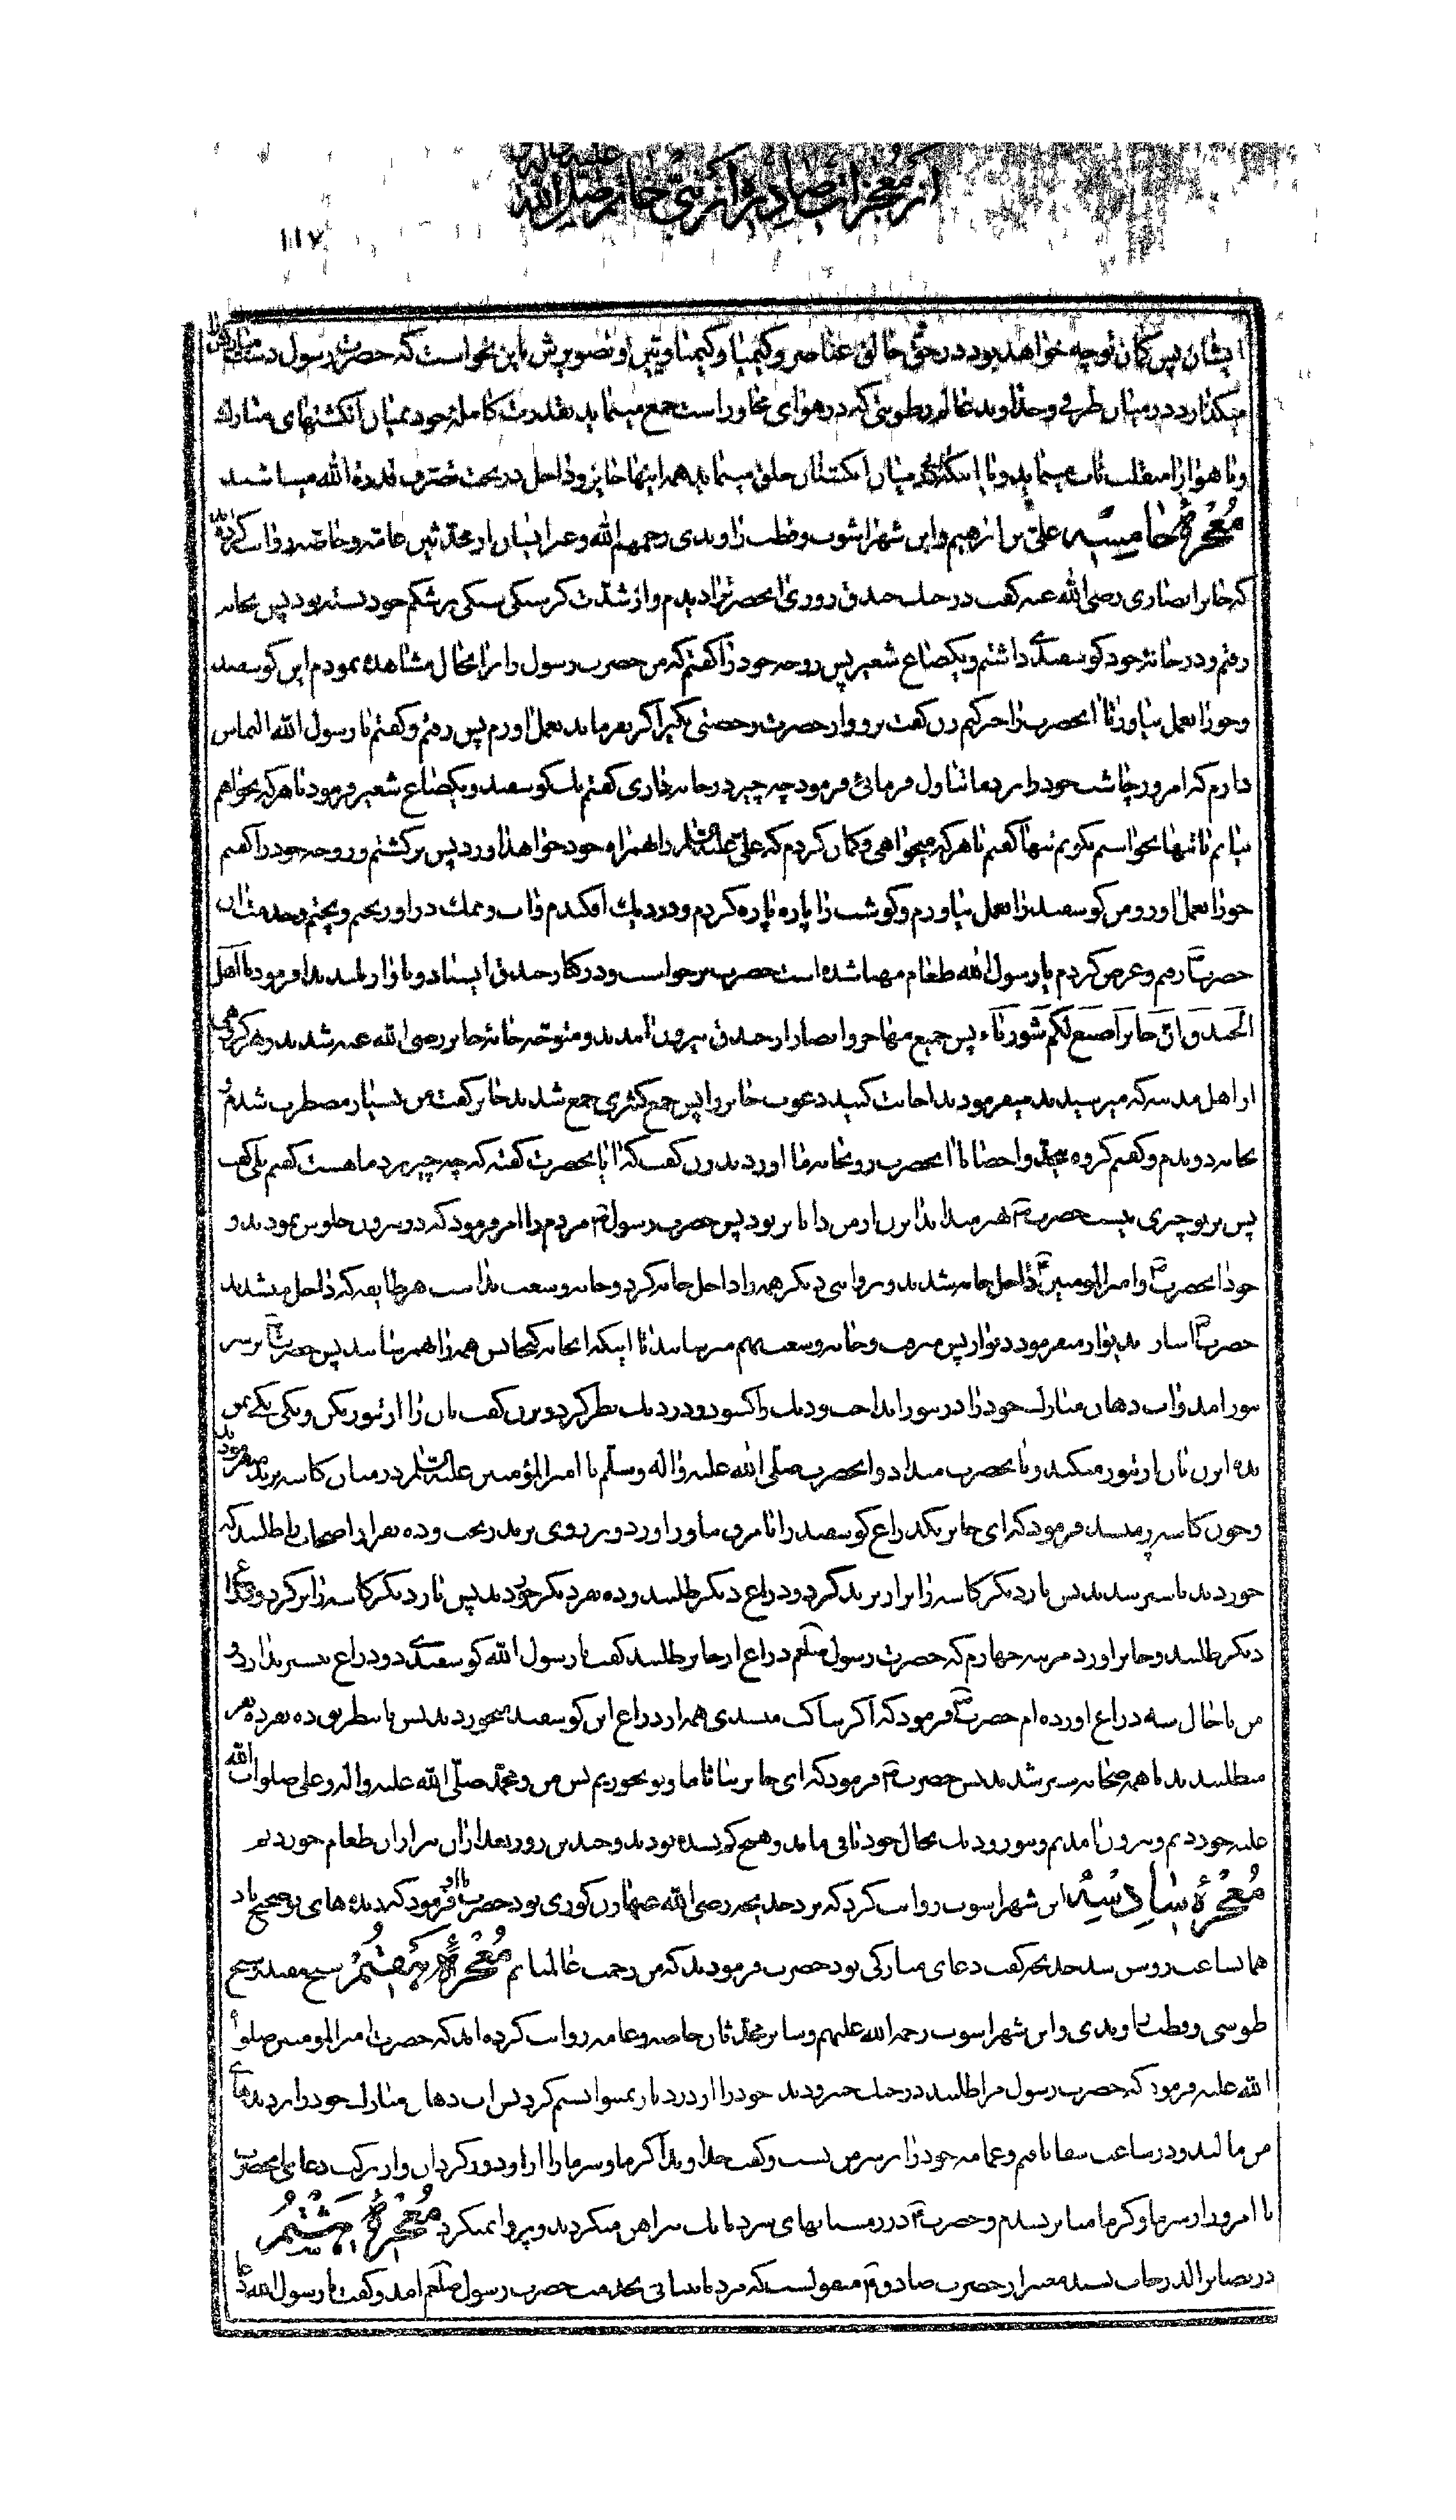 از معجزات صادره از نبی خاتم صلی الله علیه و اله
۱۱۷
ایشان پس کمان تو چه خواهد بود در حق خالق عناصر و کیمیا و کیمیاویین او تصویرش باین نحو است که حضرت رسول دست مبارکش
میکذارد در میان ظرفی و خداوند عالم رطوبتی که در هوای مجاور است جمع مینماید بقدرت کامله خود بمیان انکشتهای مبارک
و یا هوا را منقلب باب مینماید و یا اینکه در میان انکشتان خلق مینماید همه اینها جایز و داخل در تحت تصرف قدرة الله میباشند
معجزهٔ خامسه علی بن ابرهیم و ابن شهراشوب و قطب راوندی رحمهم الله و غیر ایشان از محدثین عامه و خاصه روایت کرده‌اند
که جابر انصاری رضی الله عنه کفت در جنک خندق روزی انحضرترا دیدم و از شدت کرسنکی سنکی بر شکم خود بسته بود پس بخانه
رفتم و در خانهٔ خود کوسفندی داشتم و یکصاع شعیر پس زوجه خود را کفتم که من حضرت رسول را براینحال مشاهده نمودم این کوسفند
و جو را بعمل بیاور تا انحضرت را خبر کنم زن کفت برو و از حضرت رخصتی بکیر اکر بفرماید بعمل اورم پس رفتم و کفتم یا رسول الله التماس
دارم که امروز چاشت خود را نزد ما تناول فرمائی فرمود چه چیز در خانه داری کفتم یک کوسفند و یکصاع شعیر فرمود با هر که بخواهم
بیایم یا تنها نخواستم بکویم تنها کفتم با هر که میخواهی و کمان کردم که علی علیه السلام را همراه خود خواهد اورد پس برکشتم و زوجه خود را کفتم
جو را بعمل اور و من کوسفند را بعمل بیاورم و کوشت را پاره پاره کردم و در دیک افکندم و اب و نمک در او ریختم و پختم و بخدمت ان
حضرت رفتم و عرض کردم یا رسول الله طعام مهیا شده است حضرت برخواست و در کنار خندق ایستاد و باواز بلند ندا فرمود یا اهل
الخندق ان جابرا صنع لکم شورباء پس جمیع مهاجر و انصار از خندق بیرون امدند و متوجه خانهٔ جابر رضی الله عنه شدند و هر کروهی
از اهل مدینه که میرسیدند میفرمودند اجابت کنید دعوت جابر را پس جمع کثیری جمع شدند جابر کفت من بسیار مضطرب شدم و
بخانه دویدم و کفتم کروه بیحد و احصا با انحضرت رو بخانه ما اوردند زن کفت که ایا بحضرت کفته که چه چیز نزد ما هست کفتم بلی کفت
پس بر تو چیزی نیست حضرت هر میداند این زن از من داناتر بود پس حضرت رسول مردم را امر فرمود که در بیرون جلوس نمودند و
خود انحضرت و امیرالمومنین داخل خانه شدند و بروایتی دیکر همه را داخل خانه کرد و خانه وسعت نداشت هر طایفه که داخل میشدند
حضرت اشاره بدیوار میفرمود دیوار پس میرفت و خانه وسعت بهم میرسانید تا اینکه انخانه کنجایش همه را بهمرسانید پس حضرت بر سر
تنور امد و اب دهان مبارک خود را در تنور انداخت و دیک را کشود و در دیک نظر کرد و بزن کفت نان را از تنور بکن و یکی یکی بمن
بده ان زن نان از تنور میکند و بانحضرت میداد و انحضرت صلی الله علیه و اله و سلم با امیرالمؤمنین علیه السلام در میان کاسه ترید میفرمودند
و چون کاسه پر میشد فرمود که ای جابر یکذراع کوسفند را با مرق بیاور اورد و بر روی ترید ریخت و ده نفر از اصحاب را طلبید که
خوردند تا سیر شدند پس بار دیکر کاسه را پر از ترید کرد و ذراع دیکر طلبید و ده نفر دیکر خوردند پس بار دیکر کاسه را پر کرد و ذراع
دیکر طلبید و جابر اورد مرتبه چهارم که حضرت رسول صلعم ذراع از جابر طلبید کفت یا رسول الله کوسفندی دو ذراع بیشتر ندارد و
من تا حال سه ذراع اورده‌ام حضرت فرمود که اکر ساکت میشدی همه از ذراع این کوسفند میخوردند پس باینطریق ده نفر ده نفر
میطلبیدند تا همه صحابه سیر شدند پس حضرت فرمود که ای جابر بیا تا ما و تو بخوریم پس من و محمد صلی الله علیه و اله و علی صلوات الله
علیه خوردیم و بیرون امدیم و تنور و دیک بحال خود باقی ماند و هیچ کم نشده بودند و چندین روز بعد از ان نیز از ان طعام خوردیم
معجزهٔ سادسه ابن شهراشوب روایت کرد که نزد خدیجه رضی الله عنها زن کوری بود حضرت باو فرمود که دیده‌های تو صحیح باد
همانساعت روشن شد خدیجه کفت دعای مبارکی بود حضرت فرمودند که من رحمت عالمیانم معجزهٔ هفتم شیخ مفید و شیخ
طوسی و قطب راوندی و ابن شهراشوب رحمه الله علیهم و سایر محدثان خاصه و عامه روایت کرده‌اند که حضرت امیرالمومنین صلوات
الله علیه فرمود که حضرت رسول مرا طلبید در جنک خیبر و دیده خود را از درد باز نمیتوانستم کرد پس اب دهان مبارک خود را بر دیدهای
من مالید و در ساعت شفا یافتم و عمامه خود را بر سر من بست و کفت خداوندا کرما و سرما را از او دور کردان و از برکت دعای انحضرت
تا امروز از سرما و کرما متاثر نشدم و حضرت در زمستانهای سرد با یک پیراهن میکردیدند و پروا نمیکرد معجزهٔ هشتم
در بصائر الدرجات بسند معتبر از حضرت صادق منقولست که مرد نابینائی بخدمت حضرت رسول صلعم امد و کفت یا رسول الله دعا